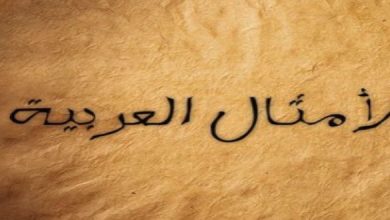 لأمثال العربية